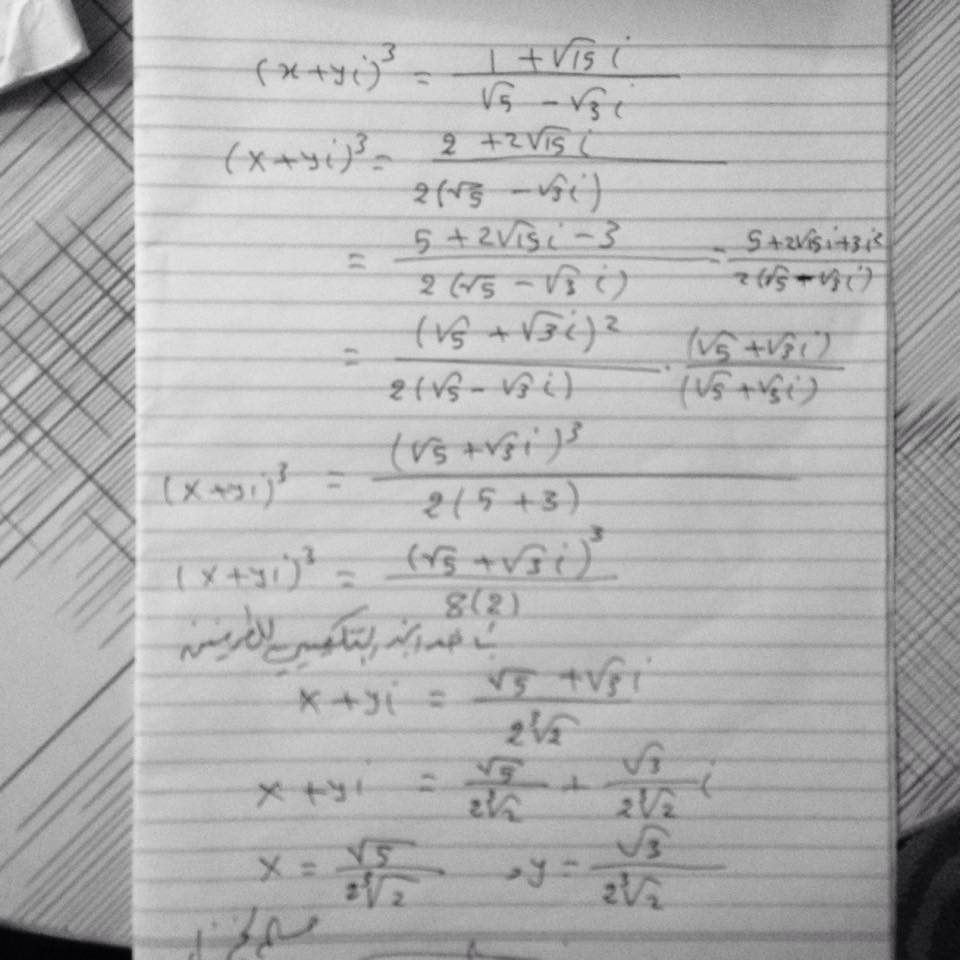 (x+yi)³ = (1 + √15 i) / (√5 - √3 i)
(x+yi)³ = (2 + 2√15 i) / (2(√5 - √3 i))
= (5 + 2√15 i - 3) / (2(√5 - √3 i)) = (5 + 2√15 i + 3i²) / (2(√5 - √3 i))
= (√5 + √3 i)² / (2(√5 - √3 i)) · (√5 + √3 i) / (√5 + √3 i)
(x+yi)³ = (√5 + √3 i)³ / (2(5 + 3))
(x+yi)³ = (√5 + √3 i)³ / (8(2))
التكعيبي للطرفين
x + yi = (√5 + √3 i) / (2∛2)
x + yi = √5 / (2∛2) + √3 / (2∛2) i
x = √5 / (2∛2) , y = √3 / (2∛2)